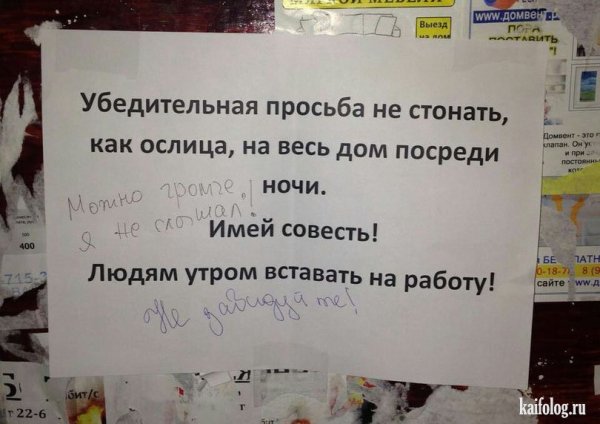 МЯГКОЙ МЕБЕЛИ
Выезд
на дом
www.домвент.ру
ПОРА
ПОСТАВИТЬ
Убедительная просьба не стонать,
как ослица, на весь дом посреди
ночи.
Можно громче!
Я не слышал!
Имей совесть!
Людям утром вставать на работу!
Не завидуйте!
Домвент - это
клапан. Он
и при
постоянн
400
715-2
0-18-7
8 (9
сайте www.д
бит/с
г 22-6
kaifolog.ru